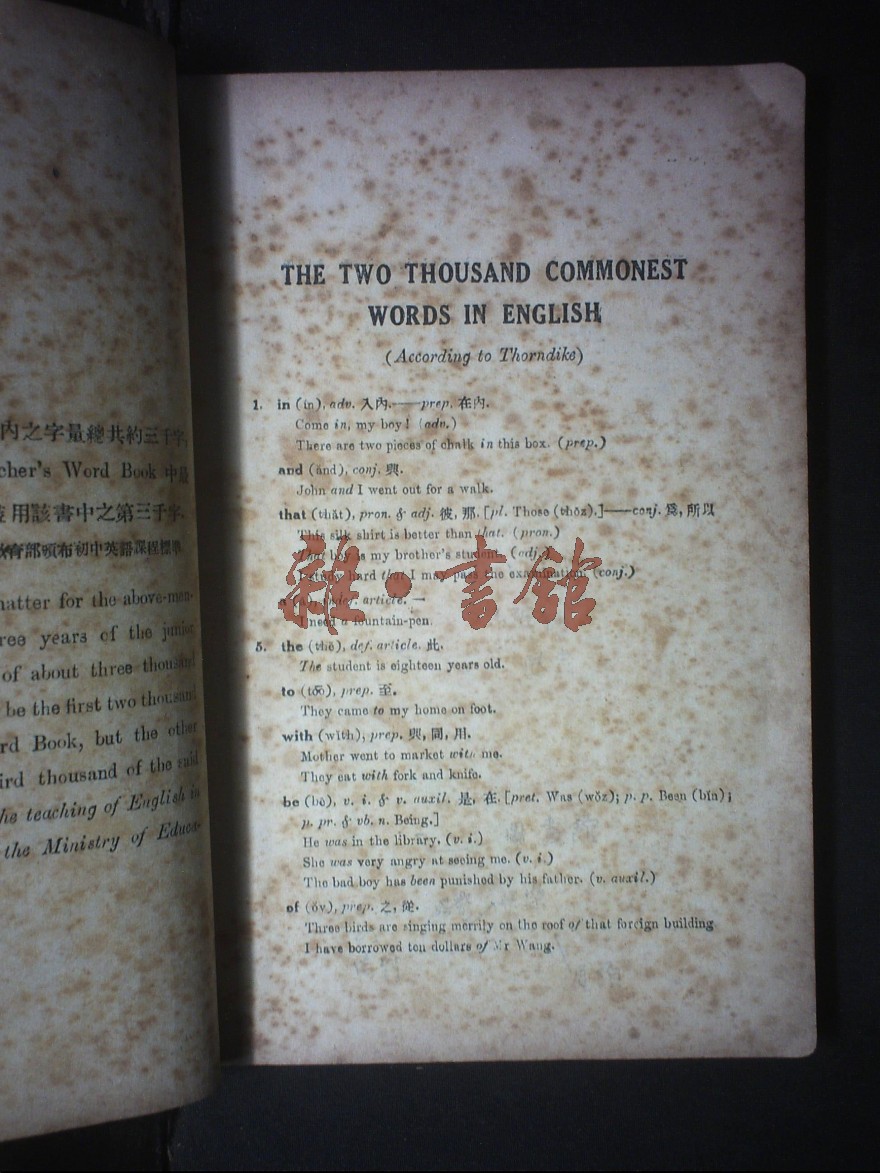 內之字量總共約三千字,
cher's Word Book 中最
用該書中之第三千字.
教育部頒布初中英語課程標準
natter for the above-men-
ree years of the junior
of about three thousand
be the first two thousand
rd Book, but the other
ird thousand of the said
he teaching of English in
the Ministry of Educa-
THE TWO THOUSAND COMMONEST
WORDS IN ENGLISH
(According to Thorndike)
1. in (ĭn), adv. 入內.——prep. 在內.
Come in, my boy! (adv.)
There are two pieces of chalk in this box. (prep.)
and (ănd), conj. 與.
John and I went out for a walk.
that (thăt), pron. & adj. 彼, 那. [pl. Those (thōz).]——conj. 爲, 所以
This silk shirt is better than that. (pron.)
That boy is my brother's student. (adj.)
I study hard that I may pass the examination. (conj.)
a (a), indef. article. 一
I need a fountain-pen.
5. the (thē), def. article. 此.
The student is eighteen years old.
to (to͞o), prep. 至.
They came to my home on foot.
with (wĭth), prep. 與, 同, 用.
Mother went to market with me.
They eat with fork and knife.
be (bē), v. i. & v. auxil. 是, 在. [pret. Was (wŏz); p. p. Been (bĭn);
p. pr. & vb. n. Being.]
He was in the library. (v. i.)
She was very angry at seeing me. (v. i.)
The bad boy has been punished by his father. (v. auxil.)
of (ŏv), prep. 之, 從.
Three birds are singing merrily on the roof of that foreign building
I have borrowed ten dollars of Mr Wang.
雜·書館